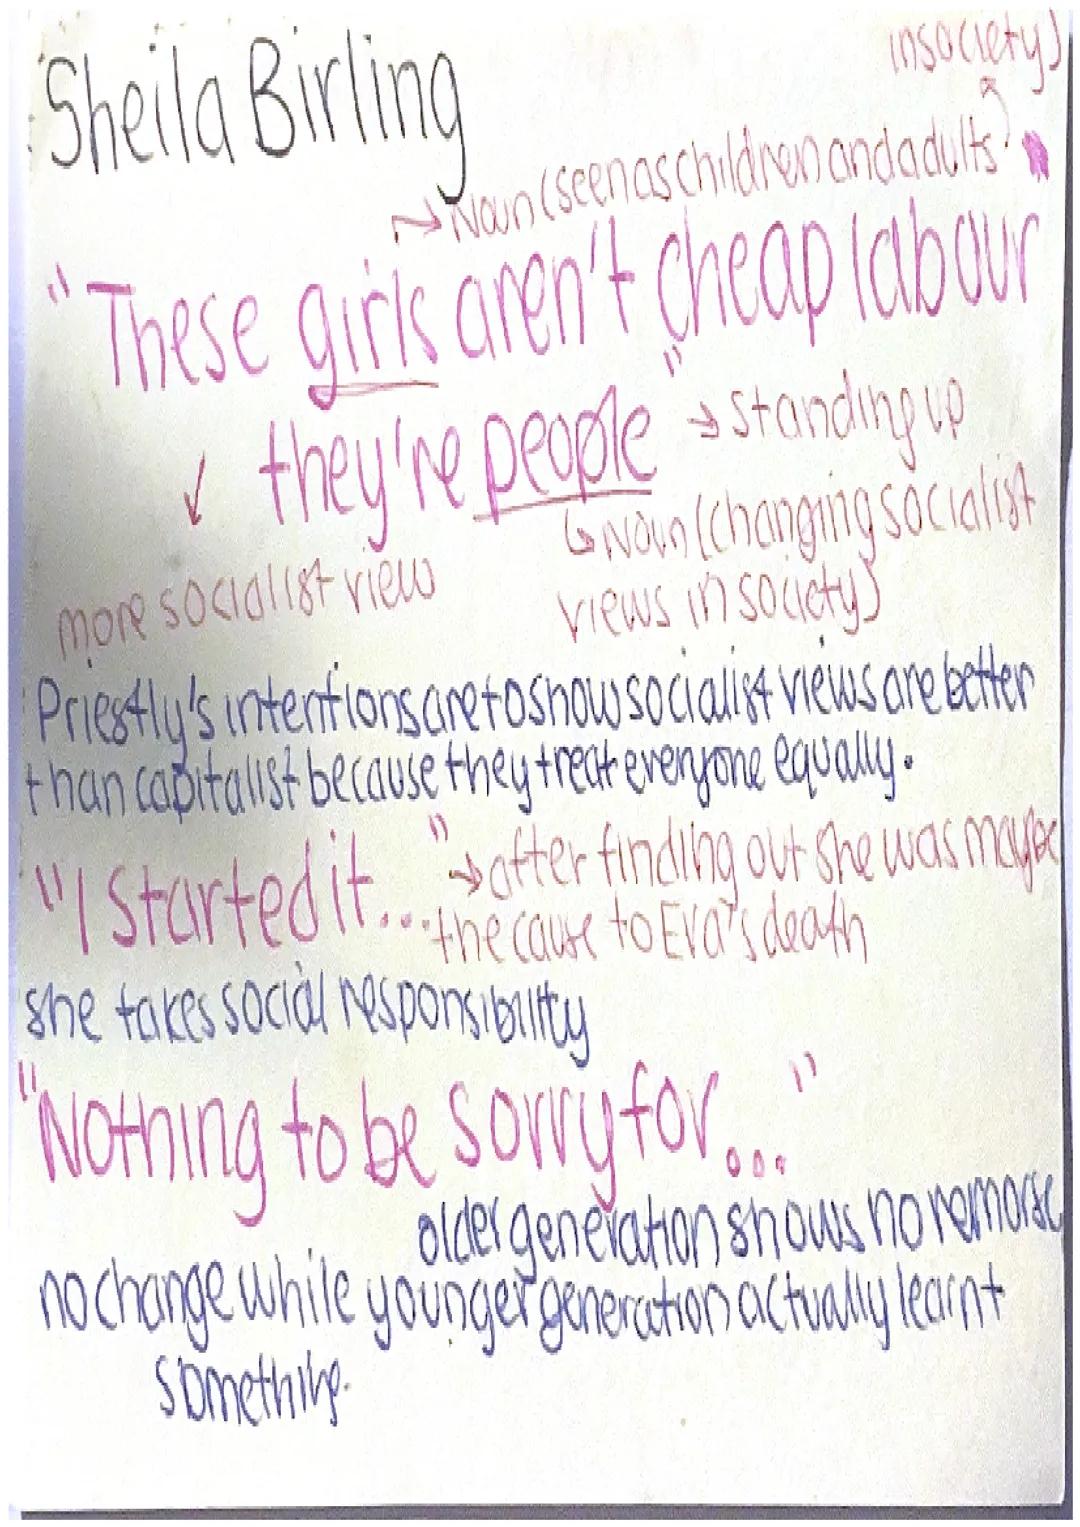 Sheila Birling
in society)
Noun (seen as children and adults
"These girls aren't cheap labour
"
they're people → standing up
↳ Noun (changing socialist
more socialist view
views in society)
Priestly's intentions are to show socialist views are better
than capitalist because they treat everyone equally.
"I started it..." → after finding out she was maybe
the cause to Eva's death
she takes social responsibility
"Nothing to be sorry for..."
older generation shows no remorse
no change while younger generation actually learnt
something.